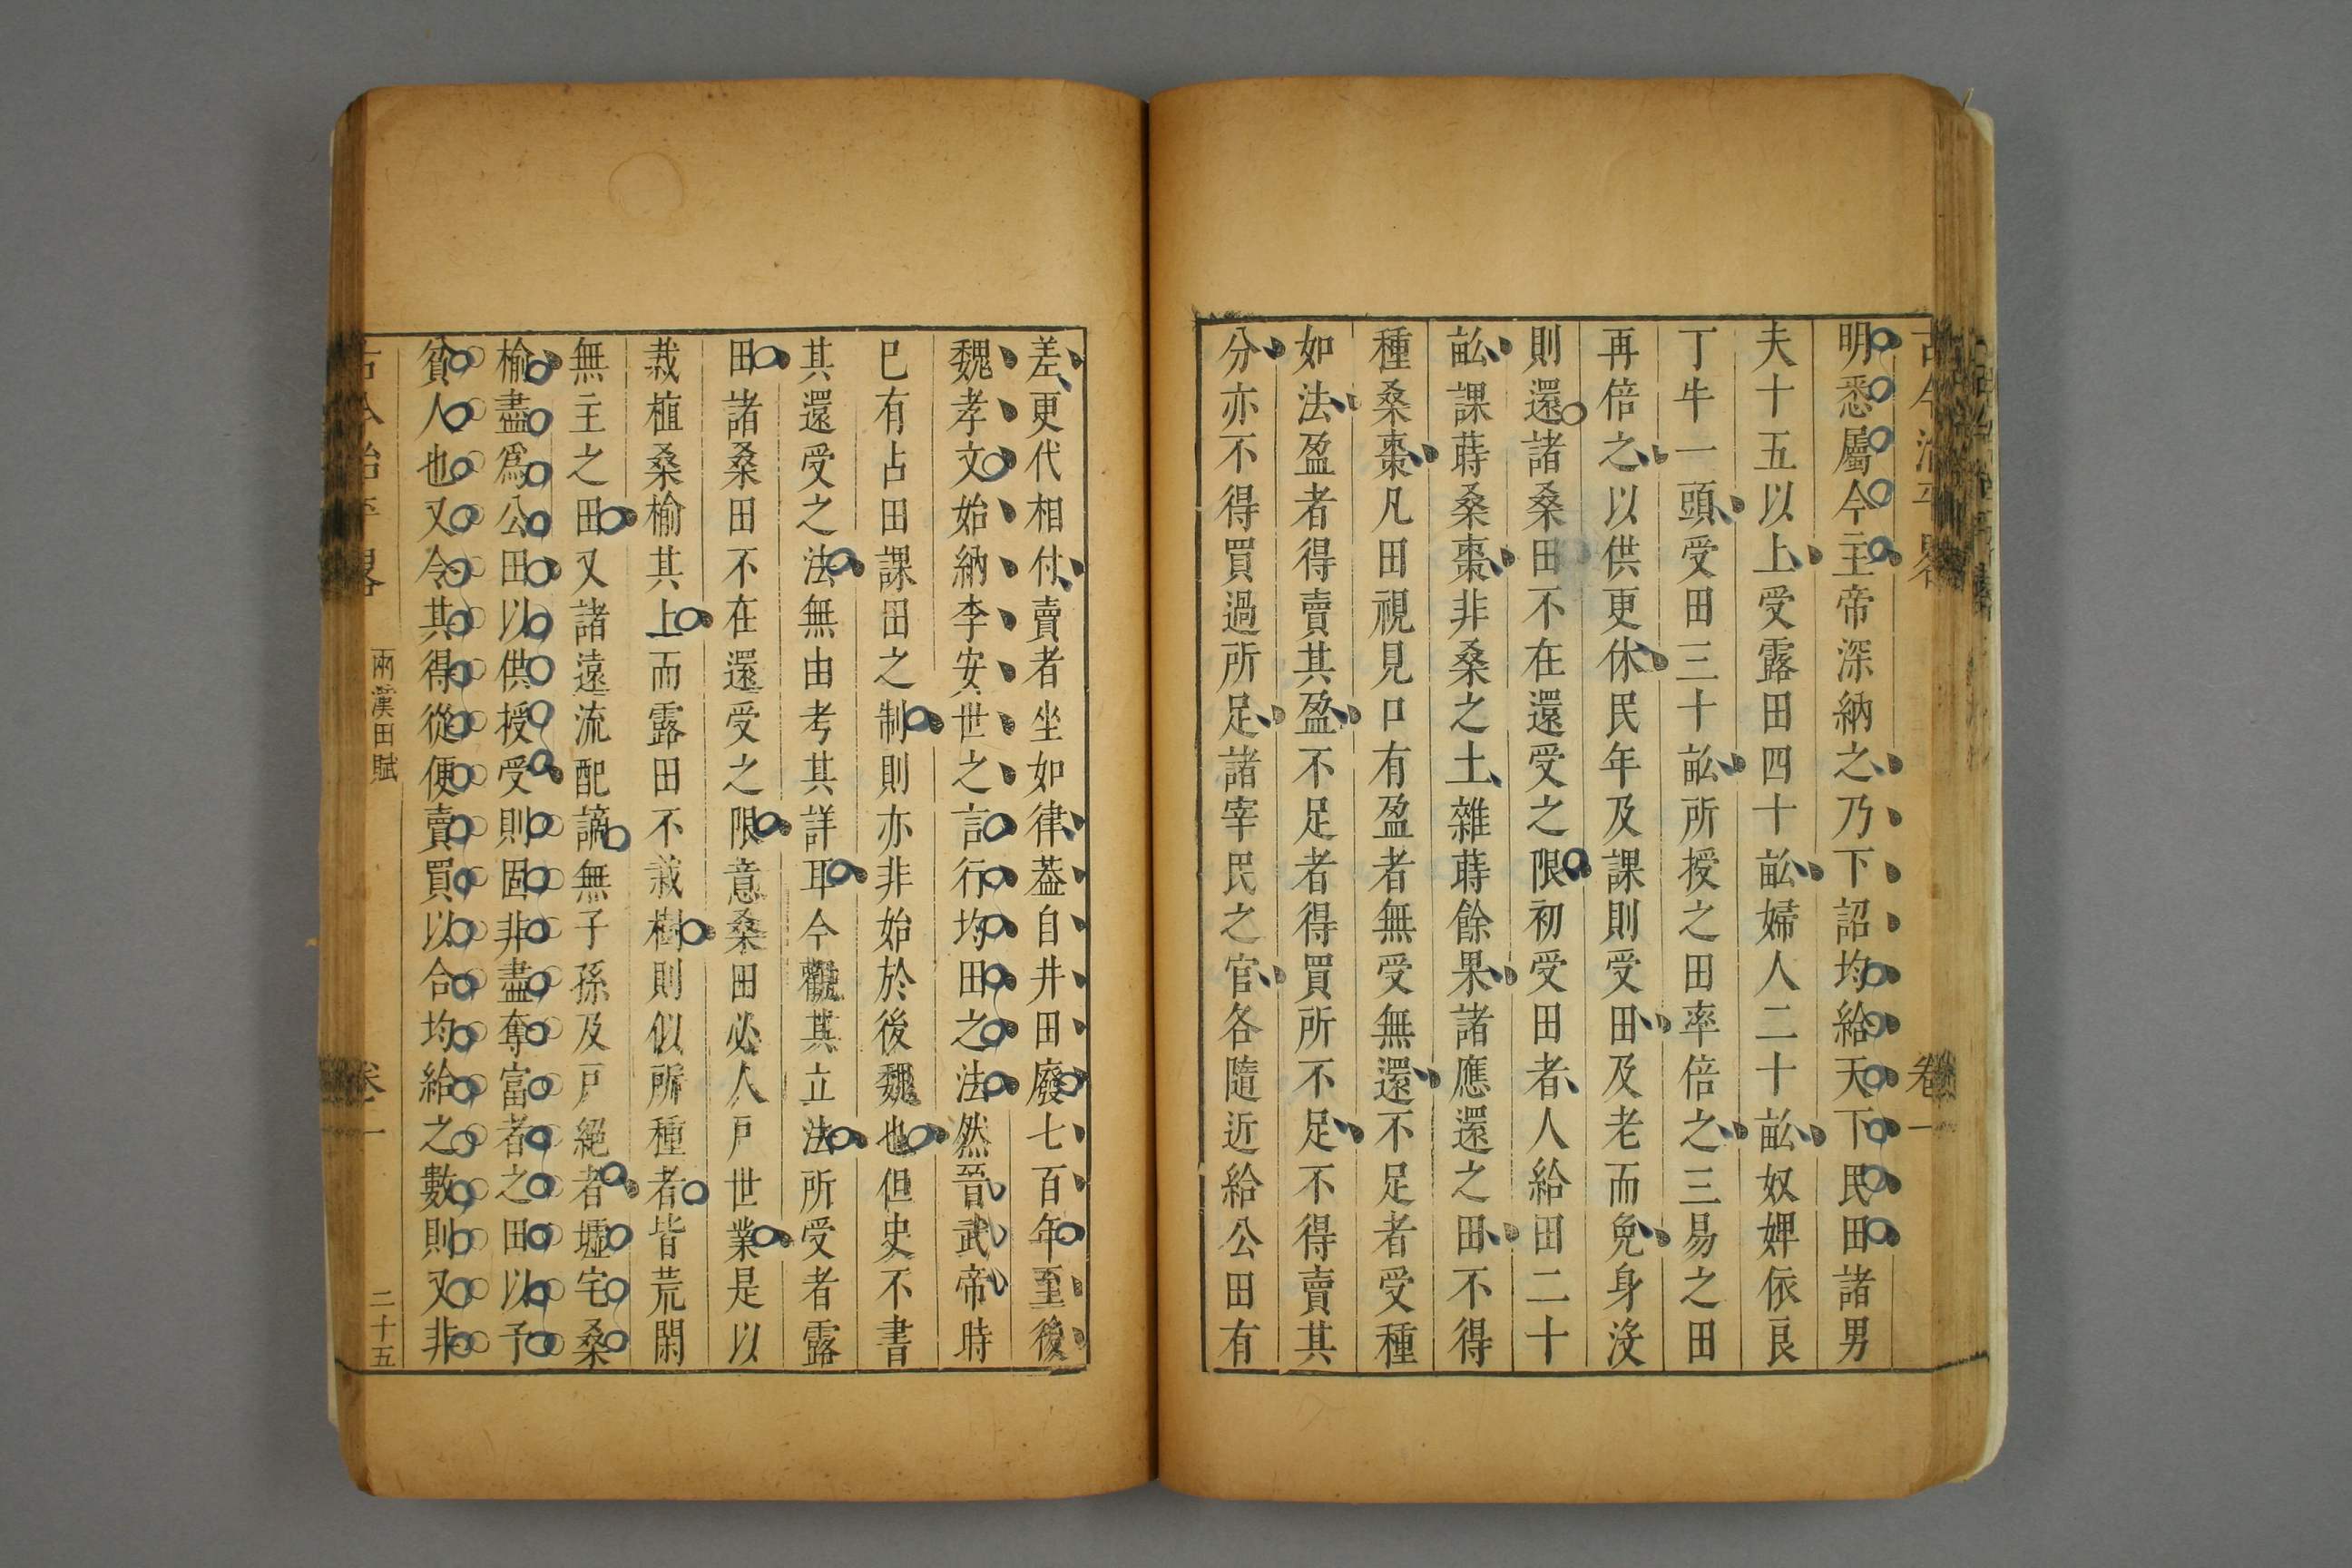 明悉屬今主帝深納之乃下詔均給天下民田諸男
夫十五以上受露田四十畝婦人二十畝奴婢依良
丁牛一頭受田三十畝所授之田率倍之三易之田
再倍之以供更休民年及課則受田及老而免身沒
則還諸桑田不在還受之限初受田者人給田二十
畝課蒔桑棗非桑之土雜蒔餘果諸應還之田不得
種桑棗凡田視見口有盈者無受無還不足者受種
如法盈者得賣其盈不足者得買所不足不得賣其
分亦不得買過所足諸宰民之官各隨近給公田有
差更代相付賣者坐如律葢自井田廢七百年至後
魏孝文始納李安世之言行均田之法然晉武帝時
巳有占田課田之制則亦非始於後魏也但史不書
其還受之法無由考其詳耳今觀其立法所受者露
田諸桑田不在還受之限意桑田必人戶世業是以
栽植桑榆其上而露田不栽樹則似所種者皆荒閑
無主之田又諸遠流配謫無子孫及戶絕者墟宅桑
榆盡爲公田以供授受則固非盡奪富者之田以予
貧人也又令其得從便賣買以合均給之數則又非
古今治平畧
兩漢田賦
卷一
二十五